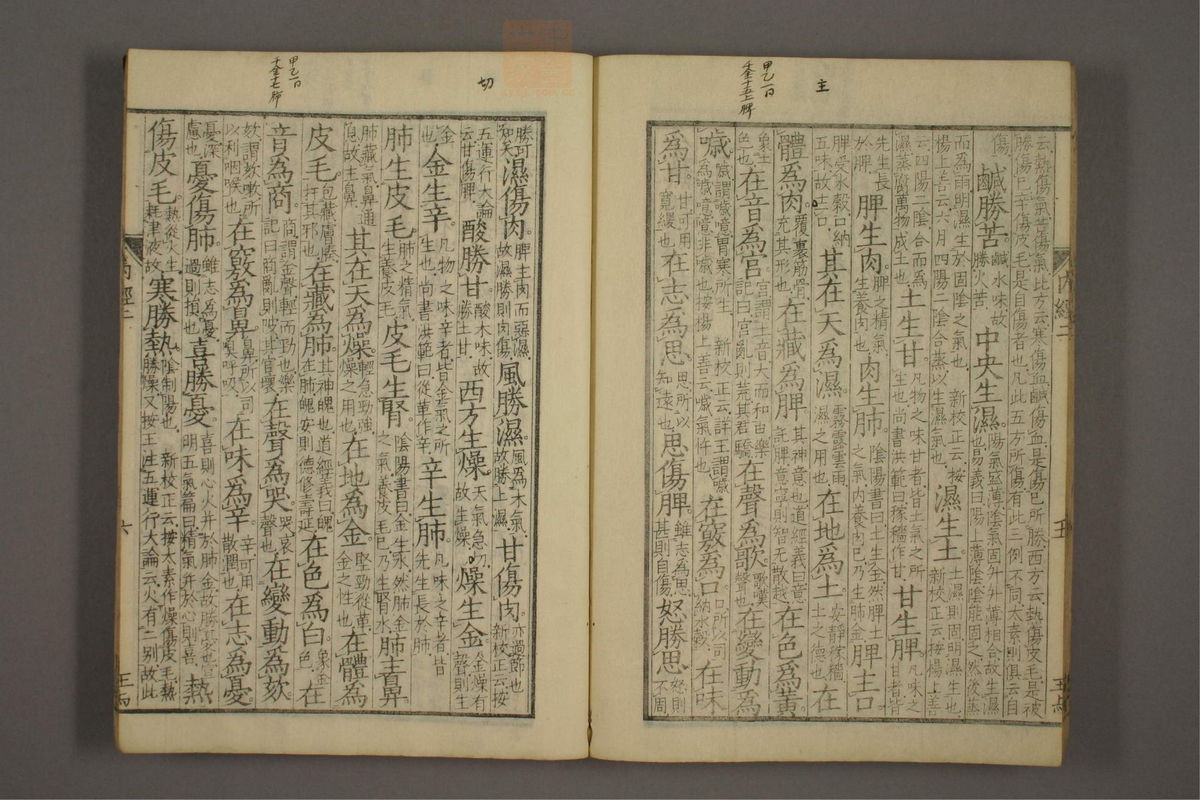 主
甲乙一曰
千金十五上脾
云熱傷氣苦傷氣比方云寒傷血鹹傷血是傷已所勝西方云熱傷皮毛是被
勝傷已辛傷皮毛是自傷者也凡此五方所傷有此三例不同太素則俱云自
傷 鹹勝苦 鹹水味故勝火苦 中央生濕 陽氣盛薄陰氣固升升薄相合故生濕也易義曰陽上薄陰陰能固之然後蒸
而為雨明濕生於固陰之氣也 新校正云按楊上善云六月四陽二陰合蒸以生濕氣也 濕生土 土濕則固明濕生也 新校正云按楊上善
云四陽二陰合而為濕蒸腐萬物成土也 土生甘 凡物之味甘者皆土氣之所生也尚書洪範曰稼穡作甘 甘生脾 凡味之甘者皆
先生長於脾 脾生肉 脾之精氣生養肉也 肉生肺 陰陽書曰土生金然脾土之氣內養肉已乃生肺金 脾主口
脾受水穀口納五味故主口 其在天為濕 霧露雲雨濕之用也 在地為土 安靜稼穡土之德也 在
體為肉 覆裏筋骨充其形也 在藏為脾 其神意也道經義曰意託脾意寧則智无散越 在色為黃
象土色也 在音為宮 宮謂土音大而和也樂記曰宮亂則荒其君驕 在聲為歌 歌嘆聲也 在變動為
噦 噦謂噦噫胃寒所生 新校正云詳王謂噦為噦噫噫非噦也按楊上善云噦氣忤也 在竅為口 口所以司納水穀 在味
為甘 甘可用寬緩也 在志為思 思所以知遠也 思傷脾 雖志為思甚則自傷 怒勝思 怒則不周
內經二
切
甲乙一曰
千金十七肺
勝可知矣 濕傷肉 脾主肉而惡濕故濕勝則肉傷 風勝濕 風為木氣故勝土濕 甘傷肉 亦過節也新校正云按
五運行大論云甘傷脾 酸勝甘 酸木味故勝土甘 西方生燥 天氣急切故生燥 燥生金 金燥有聲則生
金也 金生辛 凡物之味辛者皆金氣之所生也尚書洪範曰從革作辛 辛生肺 凡味之辛者皆先生長於肺
肺生皮毛 肺之精氣生養皮毛 皮毛生腎 陰陽書曰金生水然肺金之氣養皮毛已乃生腎水 肺主鼻
肺藏氣鼻通息故主鼻 其在天為燥 輕急勁強燥之用也 在地為金 堅勁從革金之性也 在體為
皮毛 包藏膚腠扞其邪也 在藏為肺 其神魄也道經義曰魄在肺魄安則德修壽延 在色為白 象金色 在
音為商 商謂金聲輕而勁也樂記曰商亂則陂其官壞 在聲為哭 哭哀聲也 在變動為欬
欬謂欬嗽所以利咽喉也 在竅為鼻 鼻所以司臭呼吸 在味為辛 辛可用散潤也 在志為憂
憂深慮也 憂傷肺 雖志為憂過則損也 喜勝憂 喜則心火并於肺金故勝憂也宣明五氣篇曰精氣并於心則喜 熱
傷皮毛 熱從火生耗津液故 寒勝熱 陰制陽也 新校正云按太素作燥傷皮毛熱勝燥又按王注五運行大論云火有二別故此
內經二
六